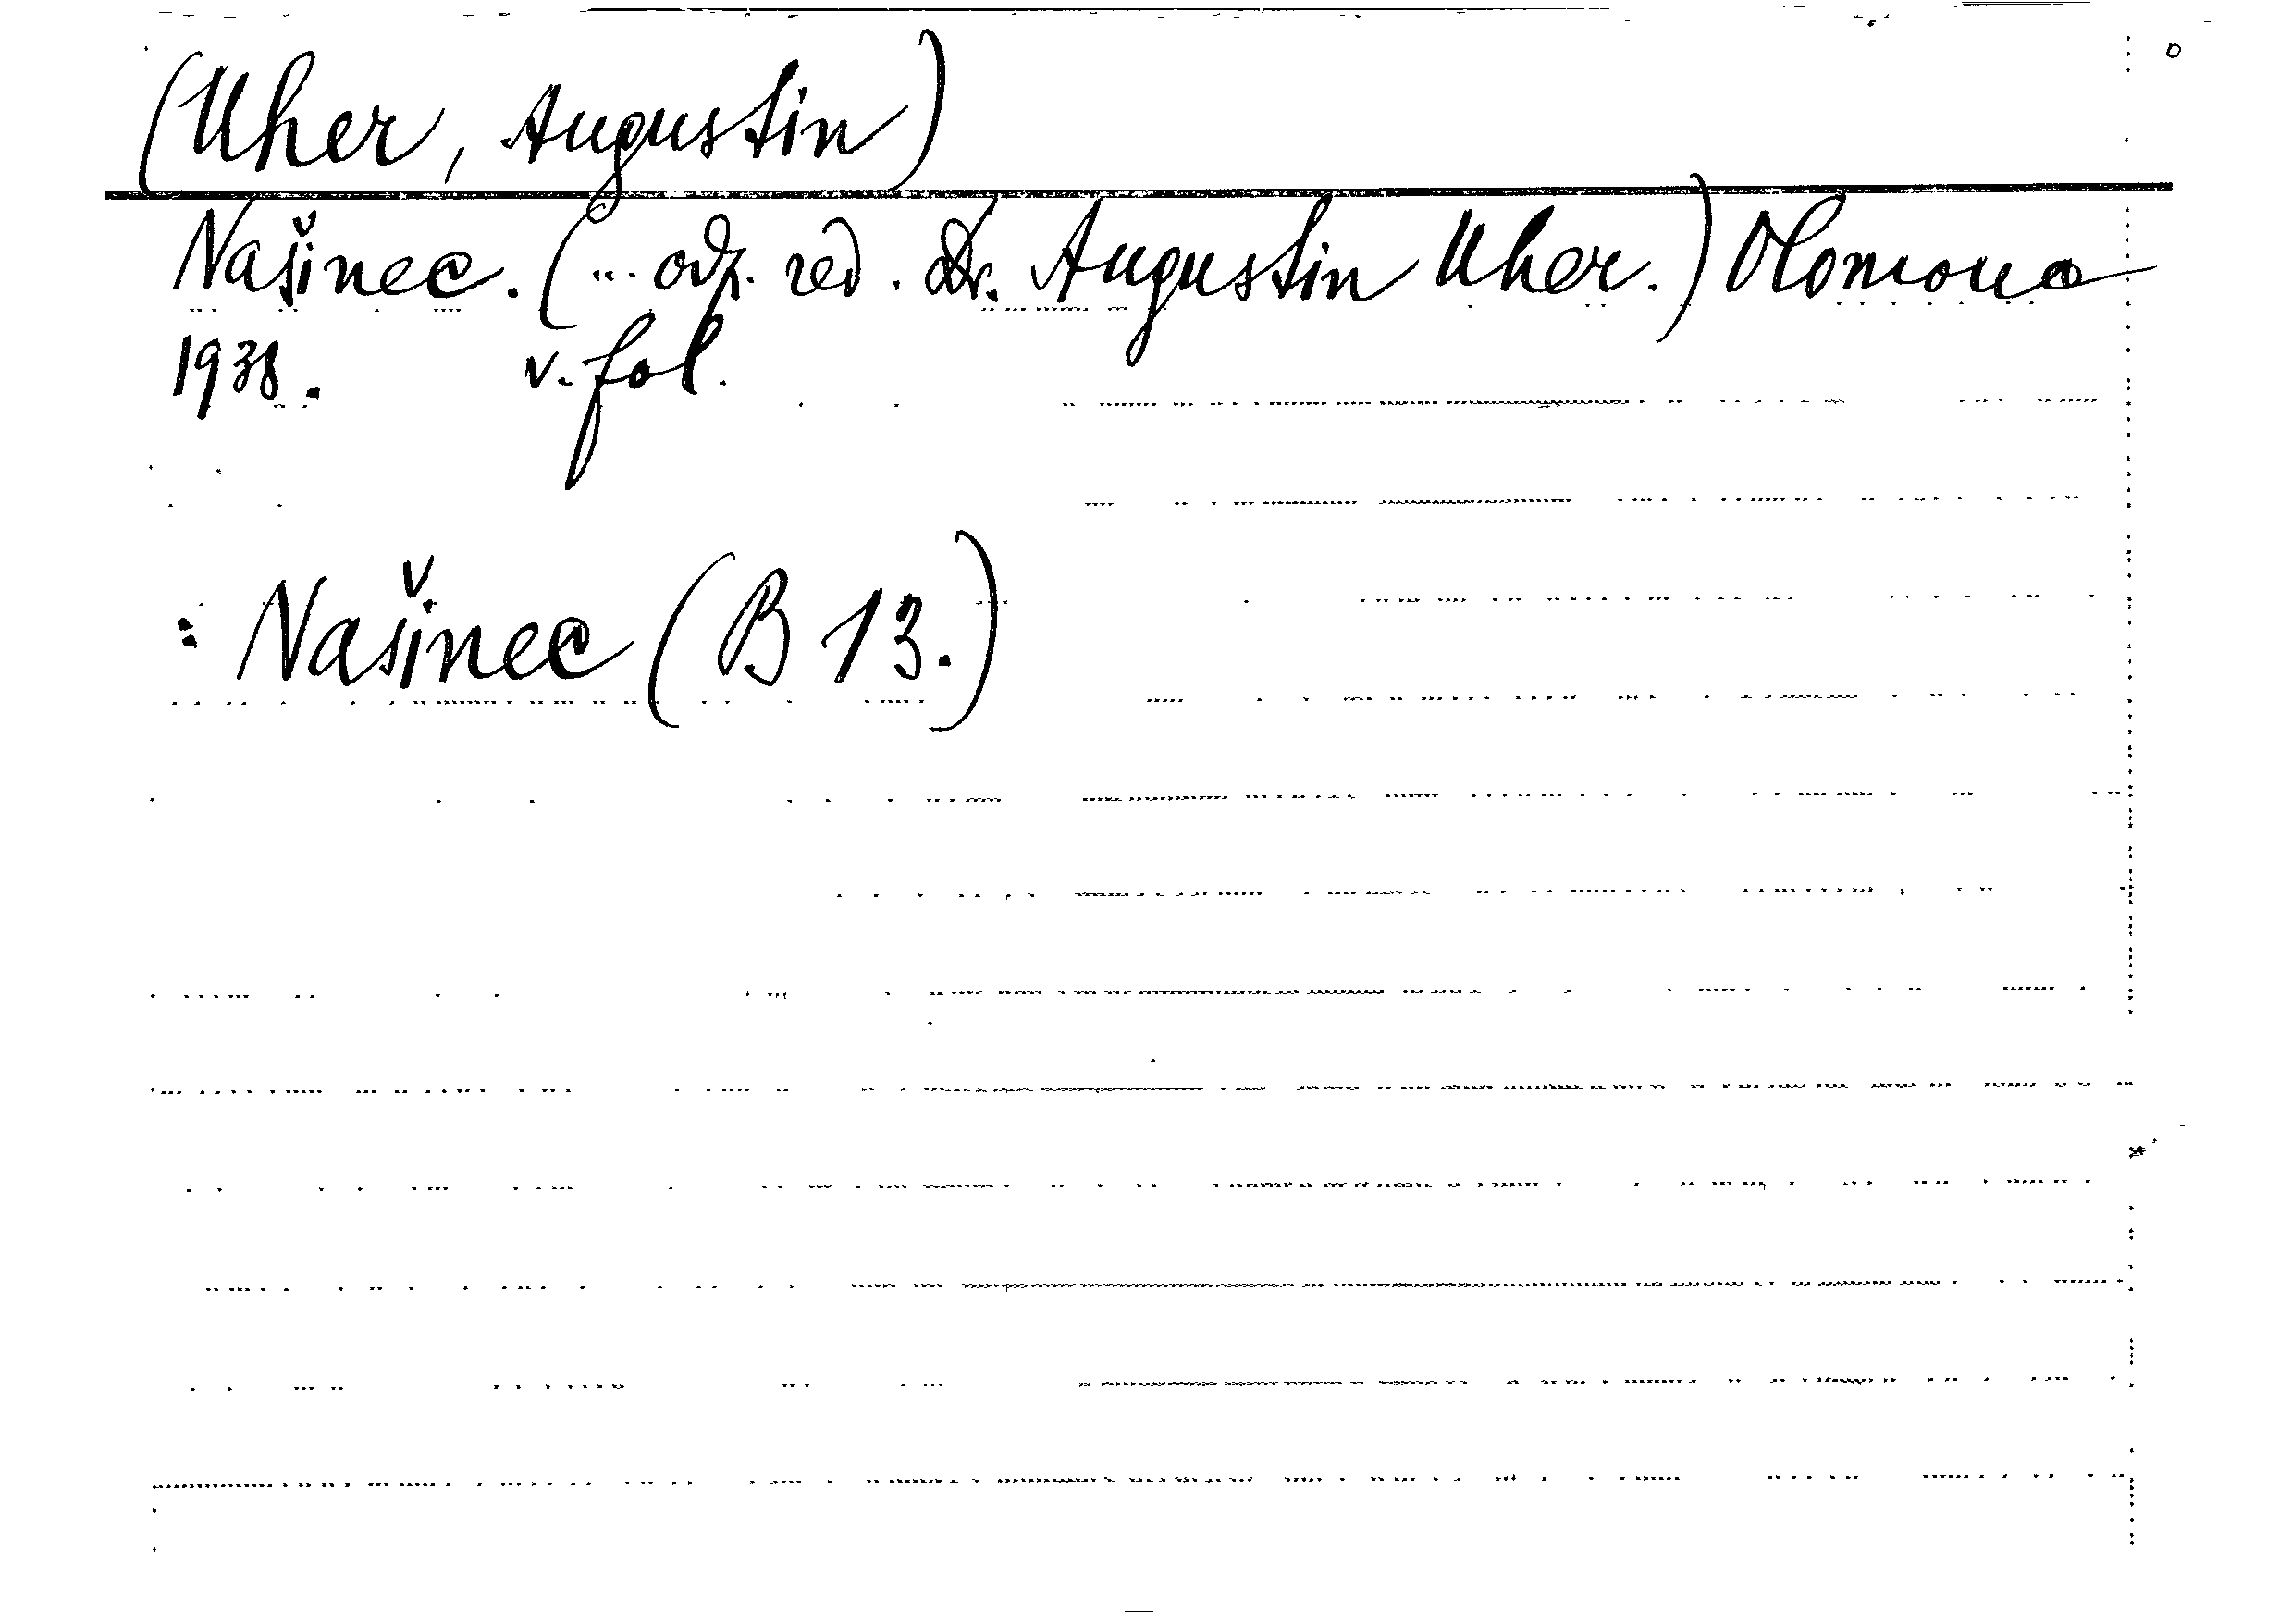 (Uher, Augustin)
Našinec. (... odp. red. Dr. Augustin Uher.) Olomouc
1938. v. fol.
: Našinec (B 13.)